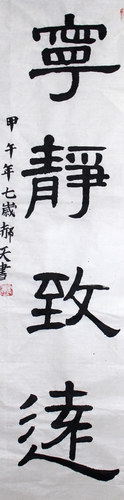 寧靜致遠
甲午年七歲郝天書